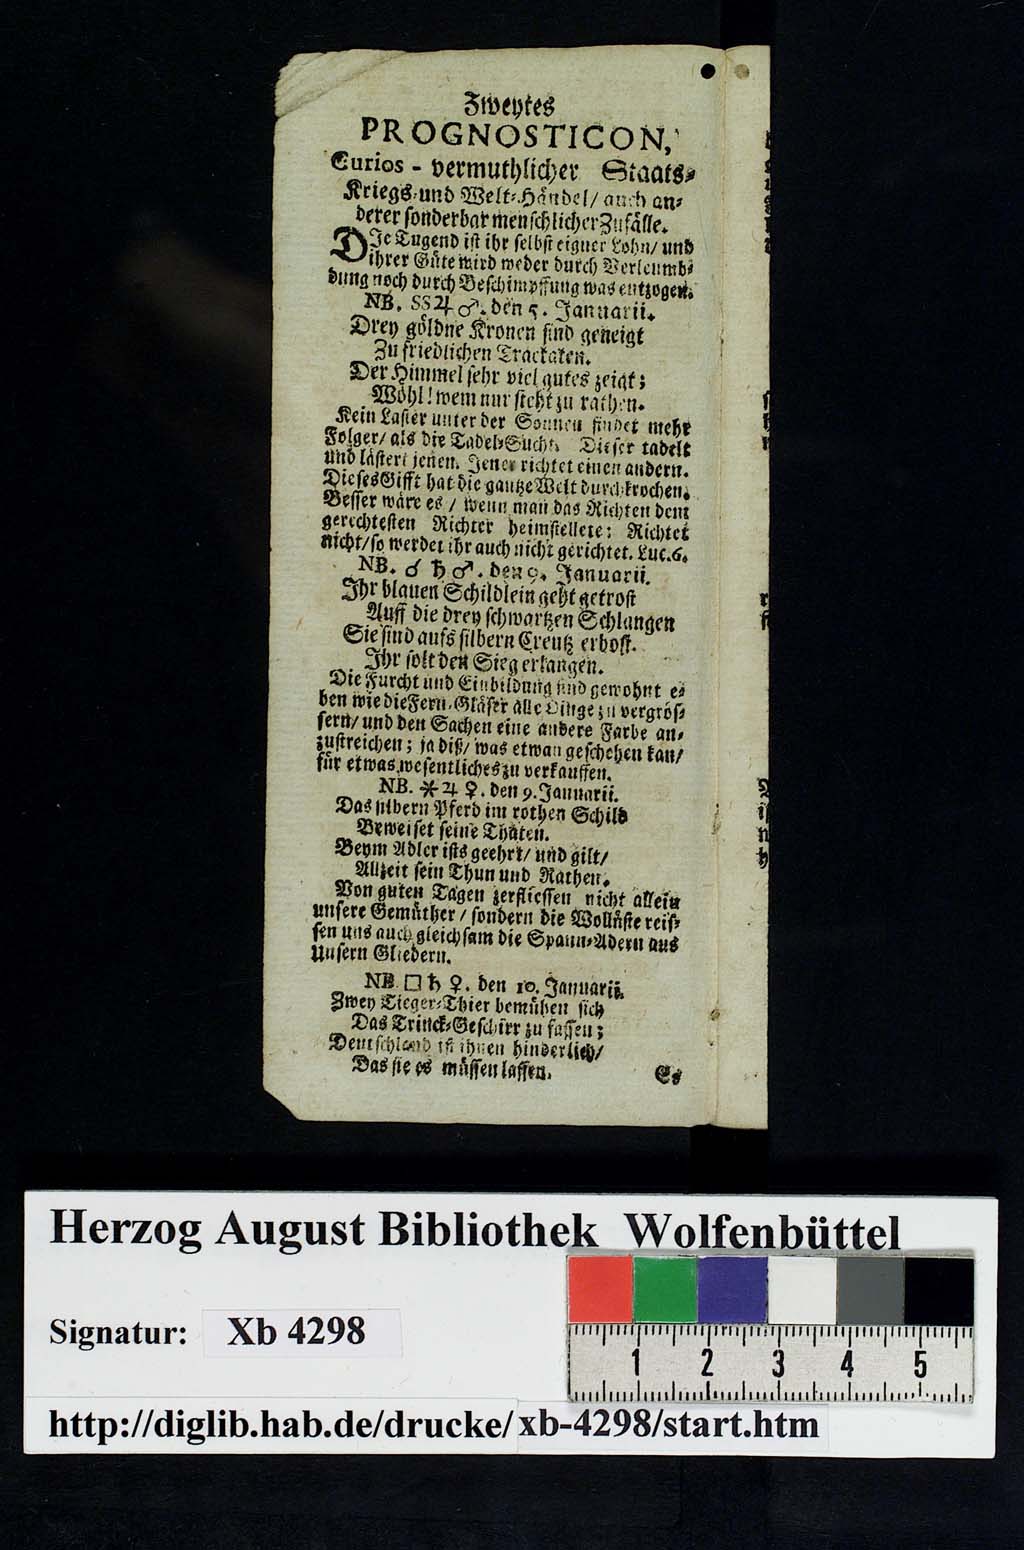 Zweytes
PROGNOSTICON,
Curios - vermuthlicher Staats-
Kriegs-und Welt-Händel/ auch an-
derer sonderbar menschlicher Zufälle.
DJe Tugend ist ihr selbst eigner Lohn/ und
ihrer Güte wird weder durch Verleumb-
dung noch durch Beschimpffung was entzogen.
NB. SS ♃ ♂. den 5. Januarii.
Drey göldne Kronen sind geneigt
Zu friedlichen Tractaten.
Der Himmel sehr viel gutes zeigt;
Wohl! wem nur steht zu rathen.
Kein Laster unter der Sonnen findet mehr
Folger/ als die Tadel-Sucht. Dieser tadelt
und lästert jenen. Jener richtet einen andern.
Dieses Gifft hat die gantze Welt durchkrochen.
Besser wäre es / wenn man das Richten dem
gerechtesten Richter heimstellete: Richtet
nicht/ so werdet ihr auch nicht gerichtet. Luc. 6.
NB. ☌ ♄ ♂. den 9. Januarii.
Jhr blauen Schildlein geht getrost
Auff die drey schwartzen Schlangen
Sie sind aufs silbern Creutz erbost.
Jhr solt den Sieg erlangen.
Die Furcht und Einbildung sind gewohnt e-
ben wie die Fern-Gläser alle Dinge zu vergrös-
sern/ und den Sachen eine andere Farbe an-
zustreichen; ja diß/ was etwan geschehen kan/
für etwas wesentliches zu verkauffen.
NB. ⚹ ♃ ♀. den 9. Januarii.
Das silbern Pferd im rothen Schild
Beweiset seine Thaten.
Beym Adler ists geehrt/ und gilt/
Allzeit sein Thun und Rathen.
Von guten Tagen zerfliessen nicht allein
unsere Gemüther / sondern die Wollüste reis-
sen uns auch gleichsam die Spann-Adern aus
Unsern Gliedern.
NB. □ ♄ ♀. den 10. Januarii.
Zwey Tieger-Thier bemühen sich
Das Trinck-Geschirr zu fassen;
Deutschland ist ihnen hinderlich/
Das sie es müssen lassen.
Es
Herzog August Bibliothek Wolfenbüttel
Signatur: Xb 4298
1 2 3 4 5
http://diglib.hab.de/drucke/xb-4298/start.htm